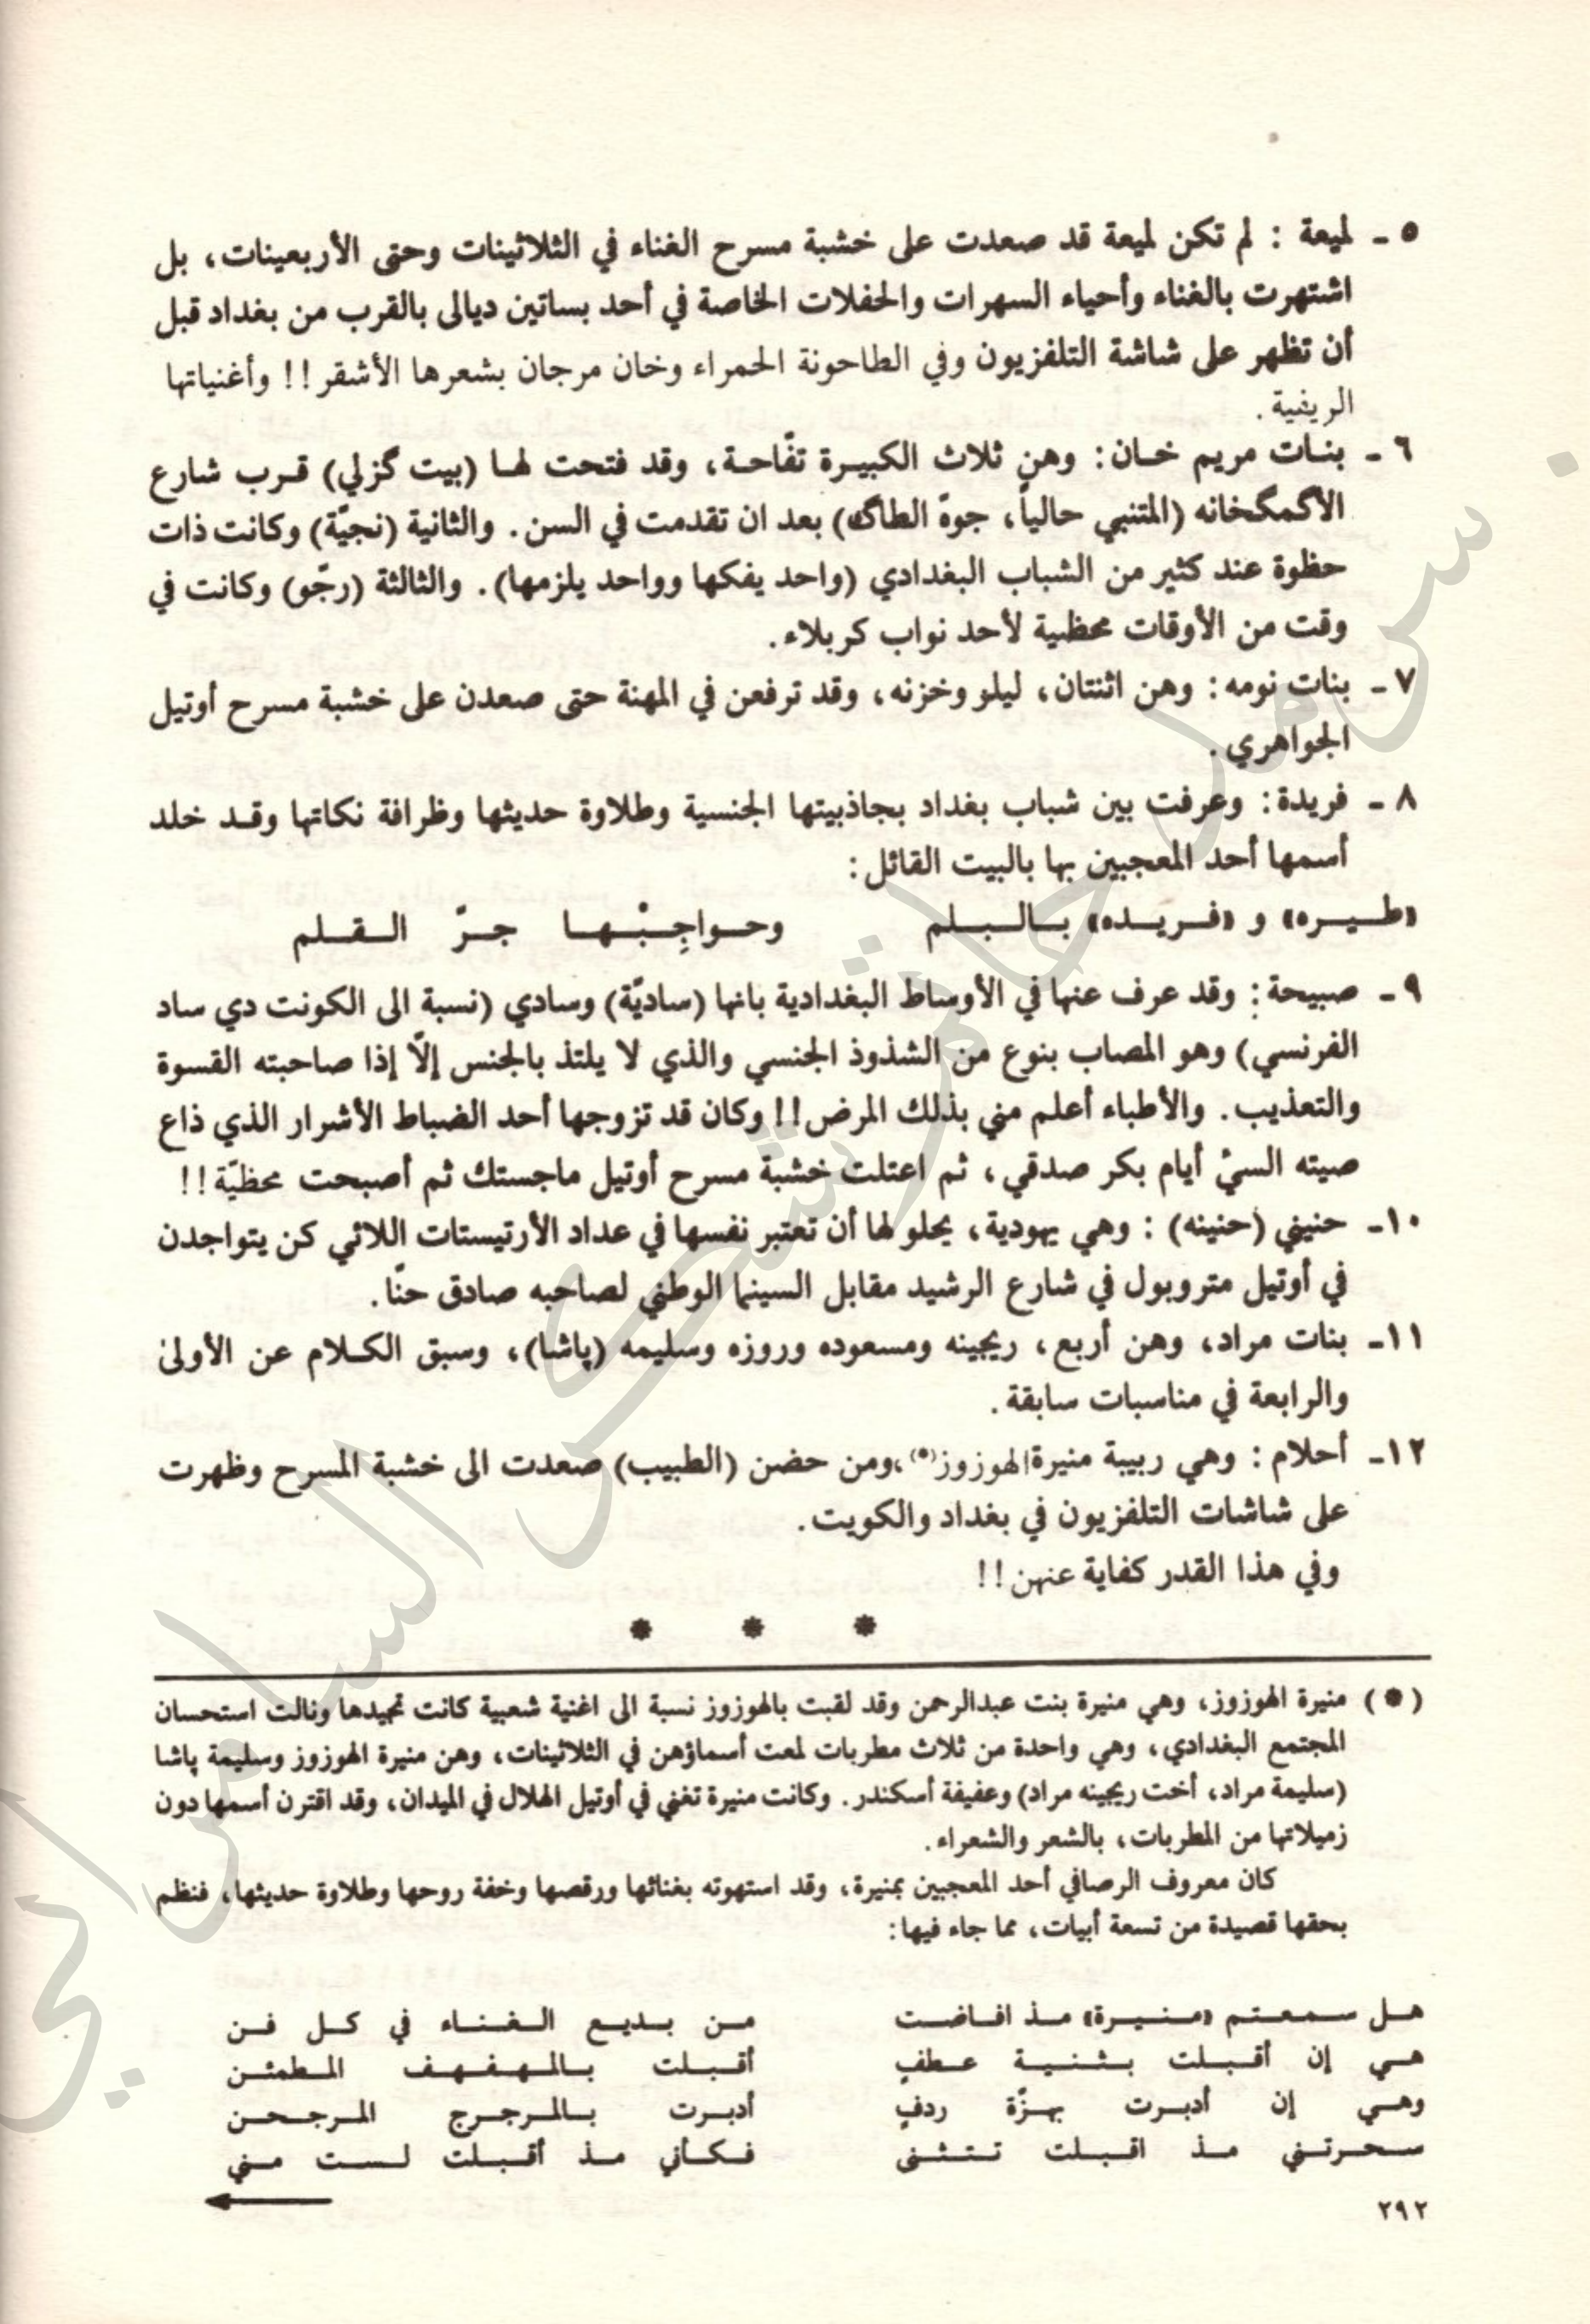 ٥ ـ لميعة : لم تكن لميعة قد صعدت على خشبة مسرح الغناء في الثلاثينات وحتى الأربعينات، بل
اشتهرت بالغناء وأحياء السهرات والحفلات الخاصة في أحد بساتين ديالى بالقرب من بغداد قبل
أن تظهر على شاشة التلفزيون وفي الطاحونة الحمراء وخان مرجان بشعرها الأشقر!! وأغنياتها
الريفية.
٦ ـ بنات مريم خان: وهن ثلاث الكبيرة تفّاحة، وقد فتحت لها (بيت گزلي) قرب شارع
الأكمگخانه (المتنبي حالياً، جوة الطاگ) بعد ان تقدمت في السن. والثانية (نجيّة) وكانت ذات
حظوة عند كثير من الشباب البغدادي (واحد يفكها وواحد يلزمها). والثالثة (رجّو) وكانت في
وقت من الأوقات محظية لأحد نواب كربلاء.
٧ ـ بنات نومه: وهن اثنتان، ليلو وخزنه، وقد ترفعن في المهنة حتى صعدن على خشبة مسرح أوتيل
الجواهري.
٨ ـ فريدة: وعرفت بين شباب بغداد بجاذبيتها الجنسية وطلاوة حديثها وظرافة نكاتها وقد خلد
أسمها أحد المعجبين بها بالبيت القائل:
«طيره» و «فريده» بالبلم وحواجِبْها جرّ القلم
٩ ـ صبيحة: وقد عرف عنها في الأوساط البغدادية بانها (ساديّة) وسادي (نسبة الى الكونت دي ساد
الفرنسي) وهو المصاب بنوع من الشذوذ الجنسي والذي لا يلتذ بالجنس إلّا إذا صاحبته القسوة
والتعذيب. والأطباء أعلم مني بذلك المرض!! وكان قد تزوجها أحد الضباط الأشرار الذي ذاع
صيته السيْ أيام بكر صدقي، ثم اعتلت خشبة مسرح أوتيل ماجستك ثم أصبحت محظيّة!!
١٠ـ حنيني (حنينه) : وهي يهودية، يحلو لها أن تعتبر نفسها في عداد الأرتيستات اللائي كن يتواجدن
في أوتيل متروبول في شارع الرشيد مقابل السينما الوطني لصاحبه صادق حنّا.
١١ـ بنات مراد، وهن أربع، ريجينه ومسعوده وروزه وسليمه (پاشا)، وسبق الكلام عن الأولى
والرابعة في مناسبات سابقة.
١٢ـ أحلام : وهي ربيبة منيرة الهوزوز(*)، ومن حضن (الطبيب) صعدت الى خشبة المسرح وظهرت
على شاشات التلفزيون في بغداد والكويت.
وفي هذا القدر كفاية عنهن!!
* * *
(*) منيرة الهوزوز، وهي منيرة بنت عبدالرحمن وقد لقبت بالهوزوز نسبة الى اغنية شعبية كانت تجيدها ونالت استحسان
المجتمع البغدادي، وهي واحدة من ثلاث مطربات لمعت أسماؤهن في الثلاثينات، وهن منيرة الهوزوز وسليمة پاشا
(سليمة مراد، أخت ريجينه مراد) وعفيفة أسكندر. وكانت منيرة تغني في أوتيل الهلال في الميدان، وقد اقترن أسمها دون
زميلاتها من المطربات، بالشعر والشعراء.
كان معروف الرصافي أحد المعجبين بمنيرة، وقد استهوته بغنائها ورقصها وخفة روحها وطلاوة حديثها، فنظم
بحقها قصيدة من تسعة أبيات، مما جاء فيها:
هل سمعتم «منيرة» مذ افاضت من بديع الغناء في كل فن
هي إن أقبلت بثنية عطفٍ أقبلت بالمهفهف المطمئن
وهي إن أدبرت بهزّة ردفٍ أدبرت بالمرجرج المرجحن
سحرتني مذ اقبلت تتثنى فكأني مذ أقبلت لست مني
٢٩٢
سرمد حاتم شكر السامرائي